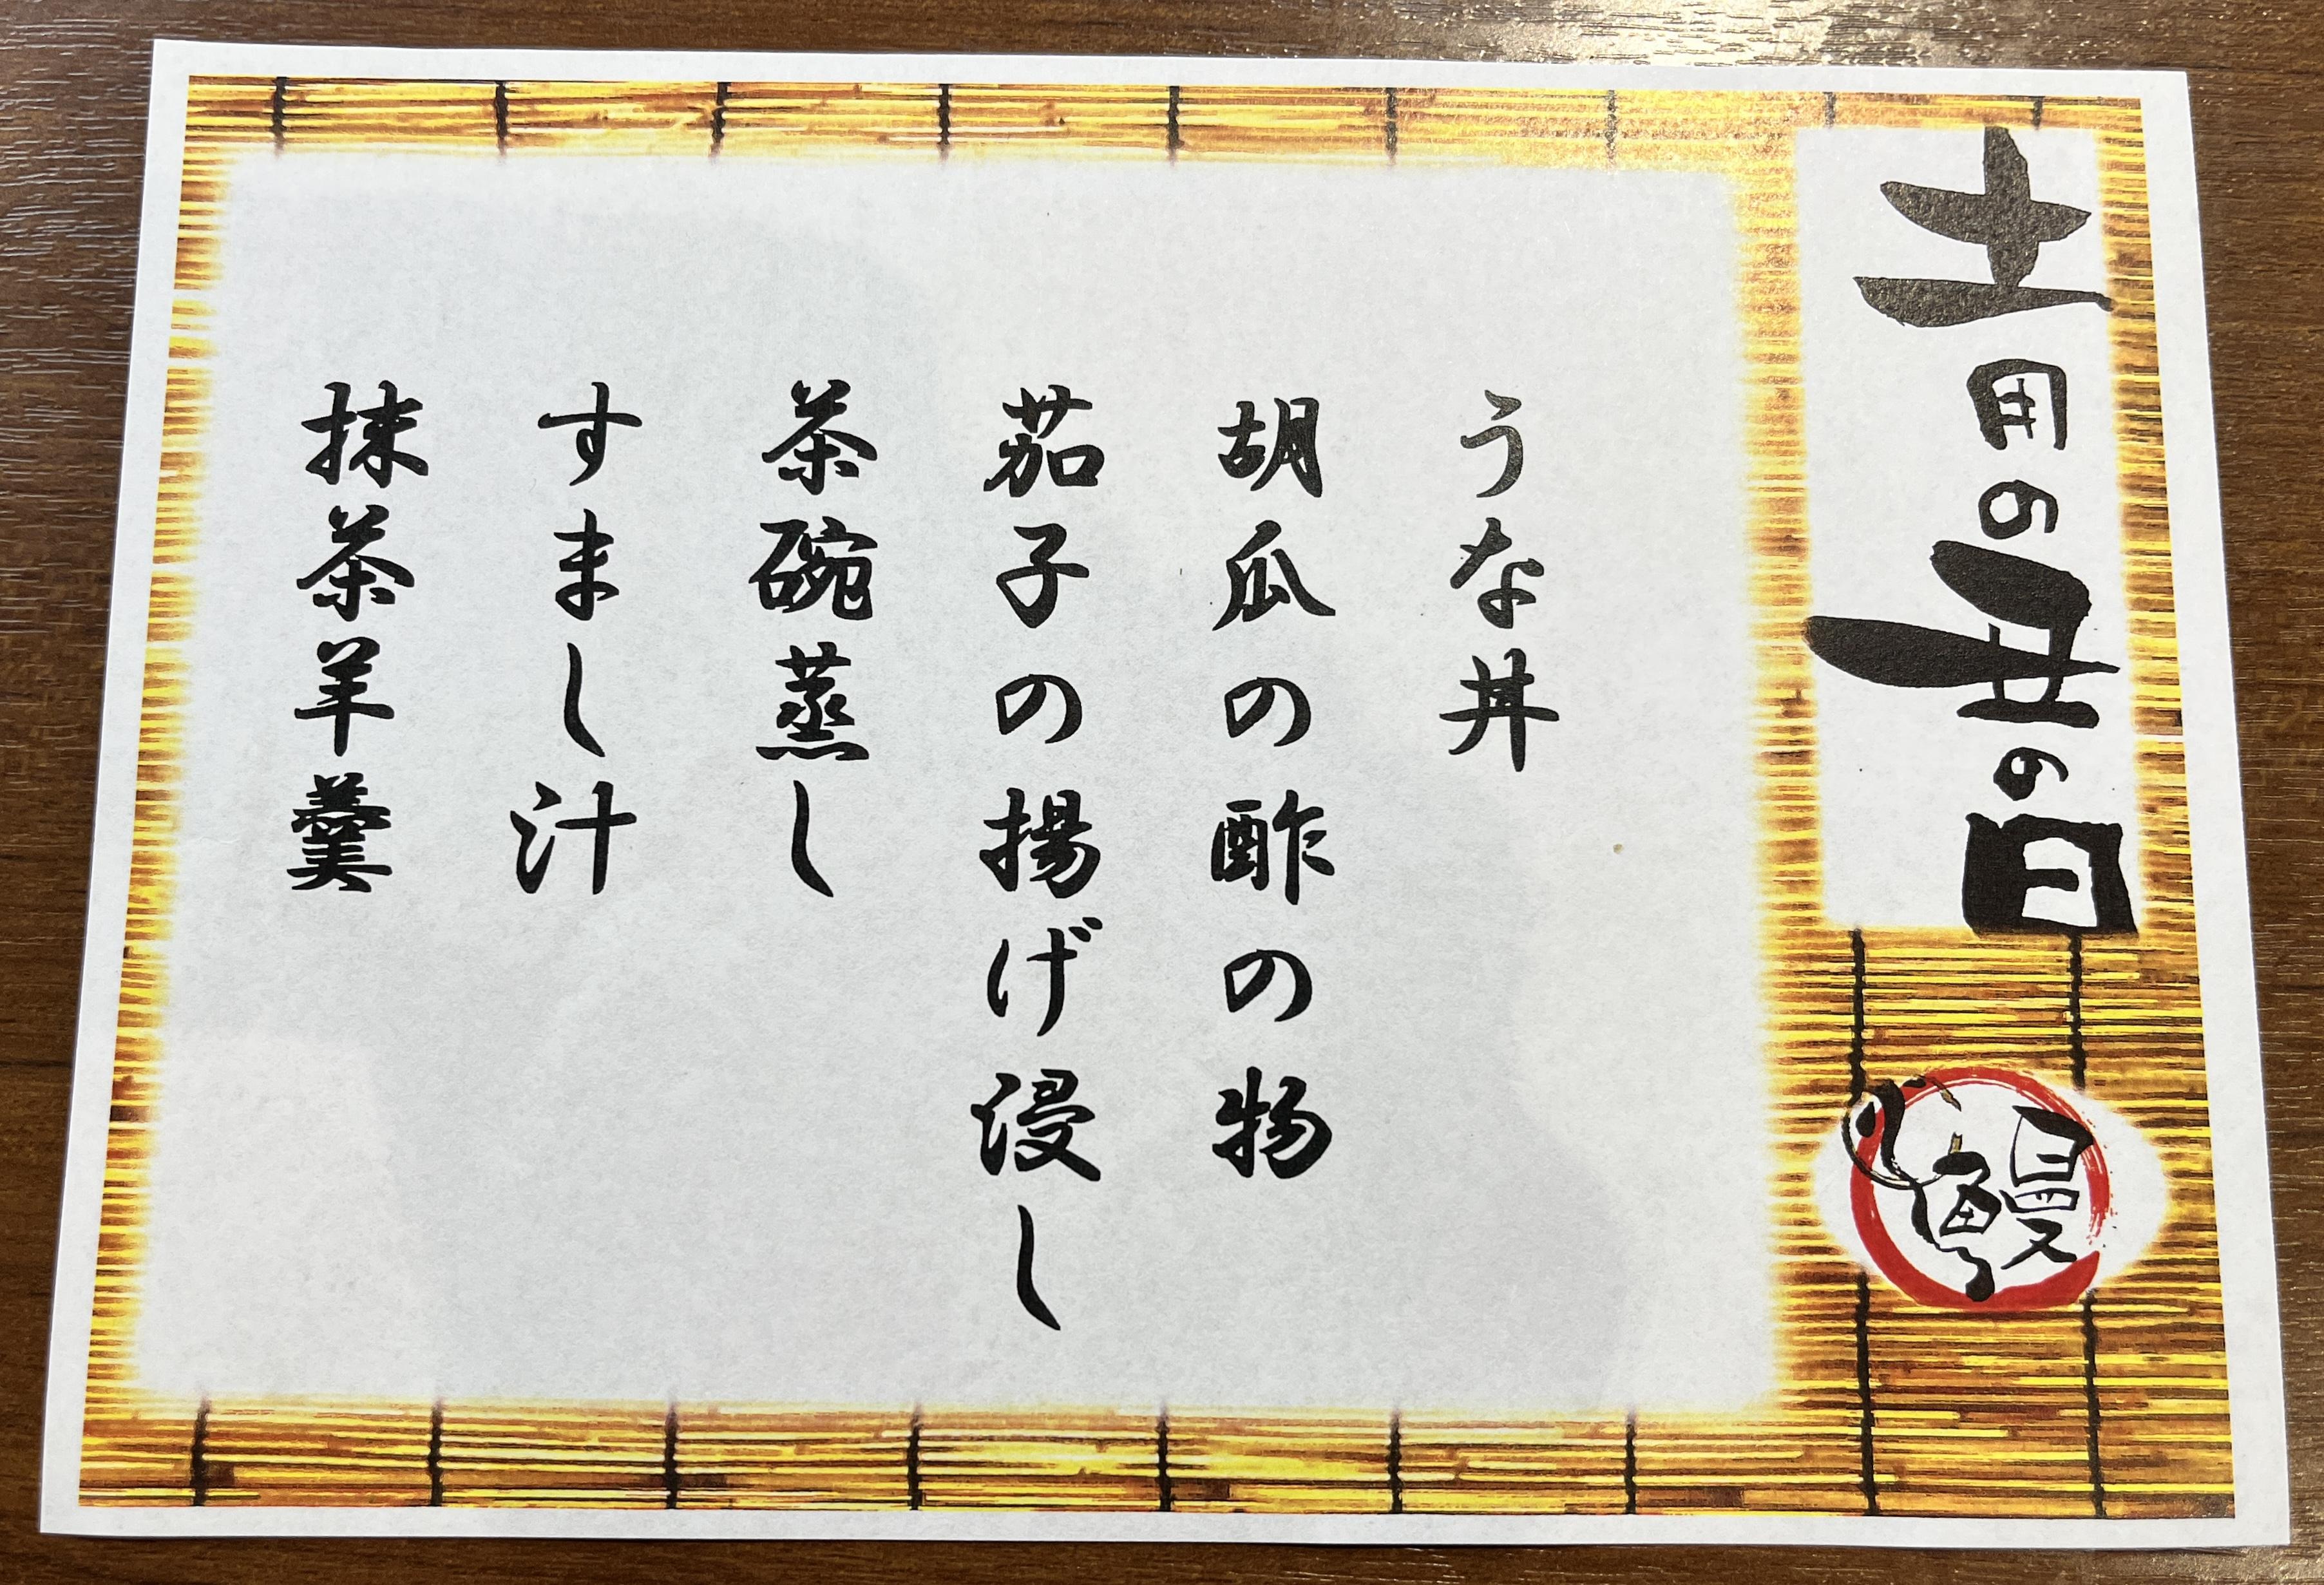 土用の丑の日
鰻
うな丼
胡瓜の酢の物
茄子の揚げ浸し
茶碗蒸し
すまし汁
抹茶羊羹